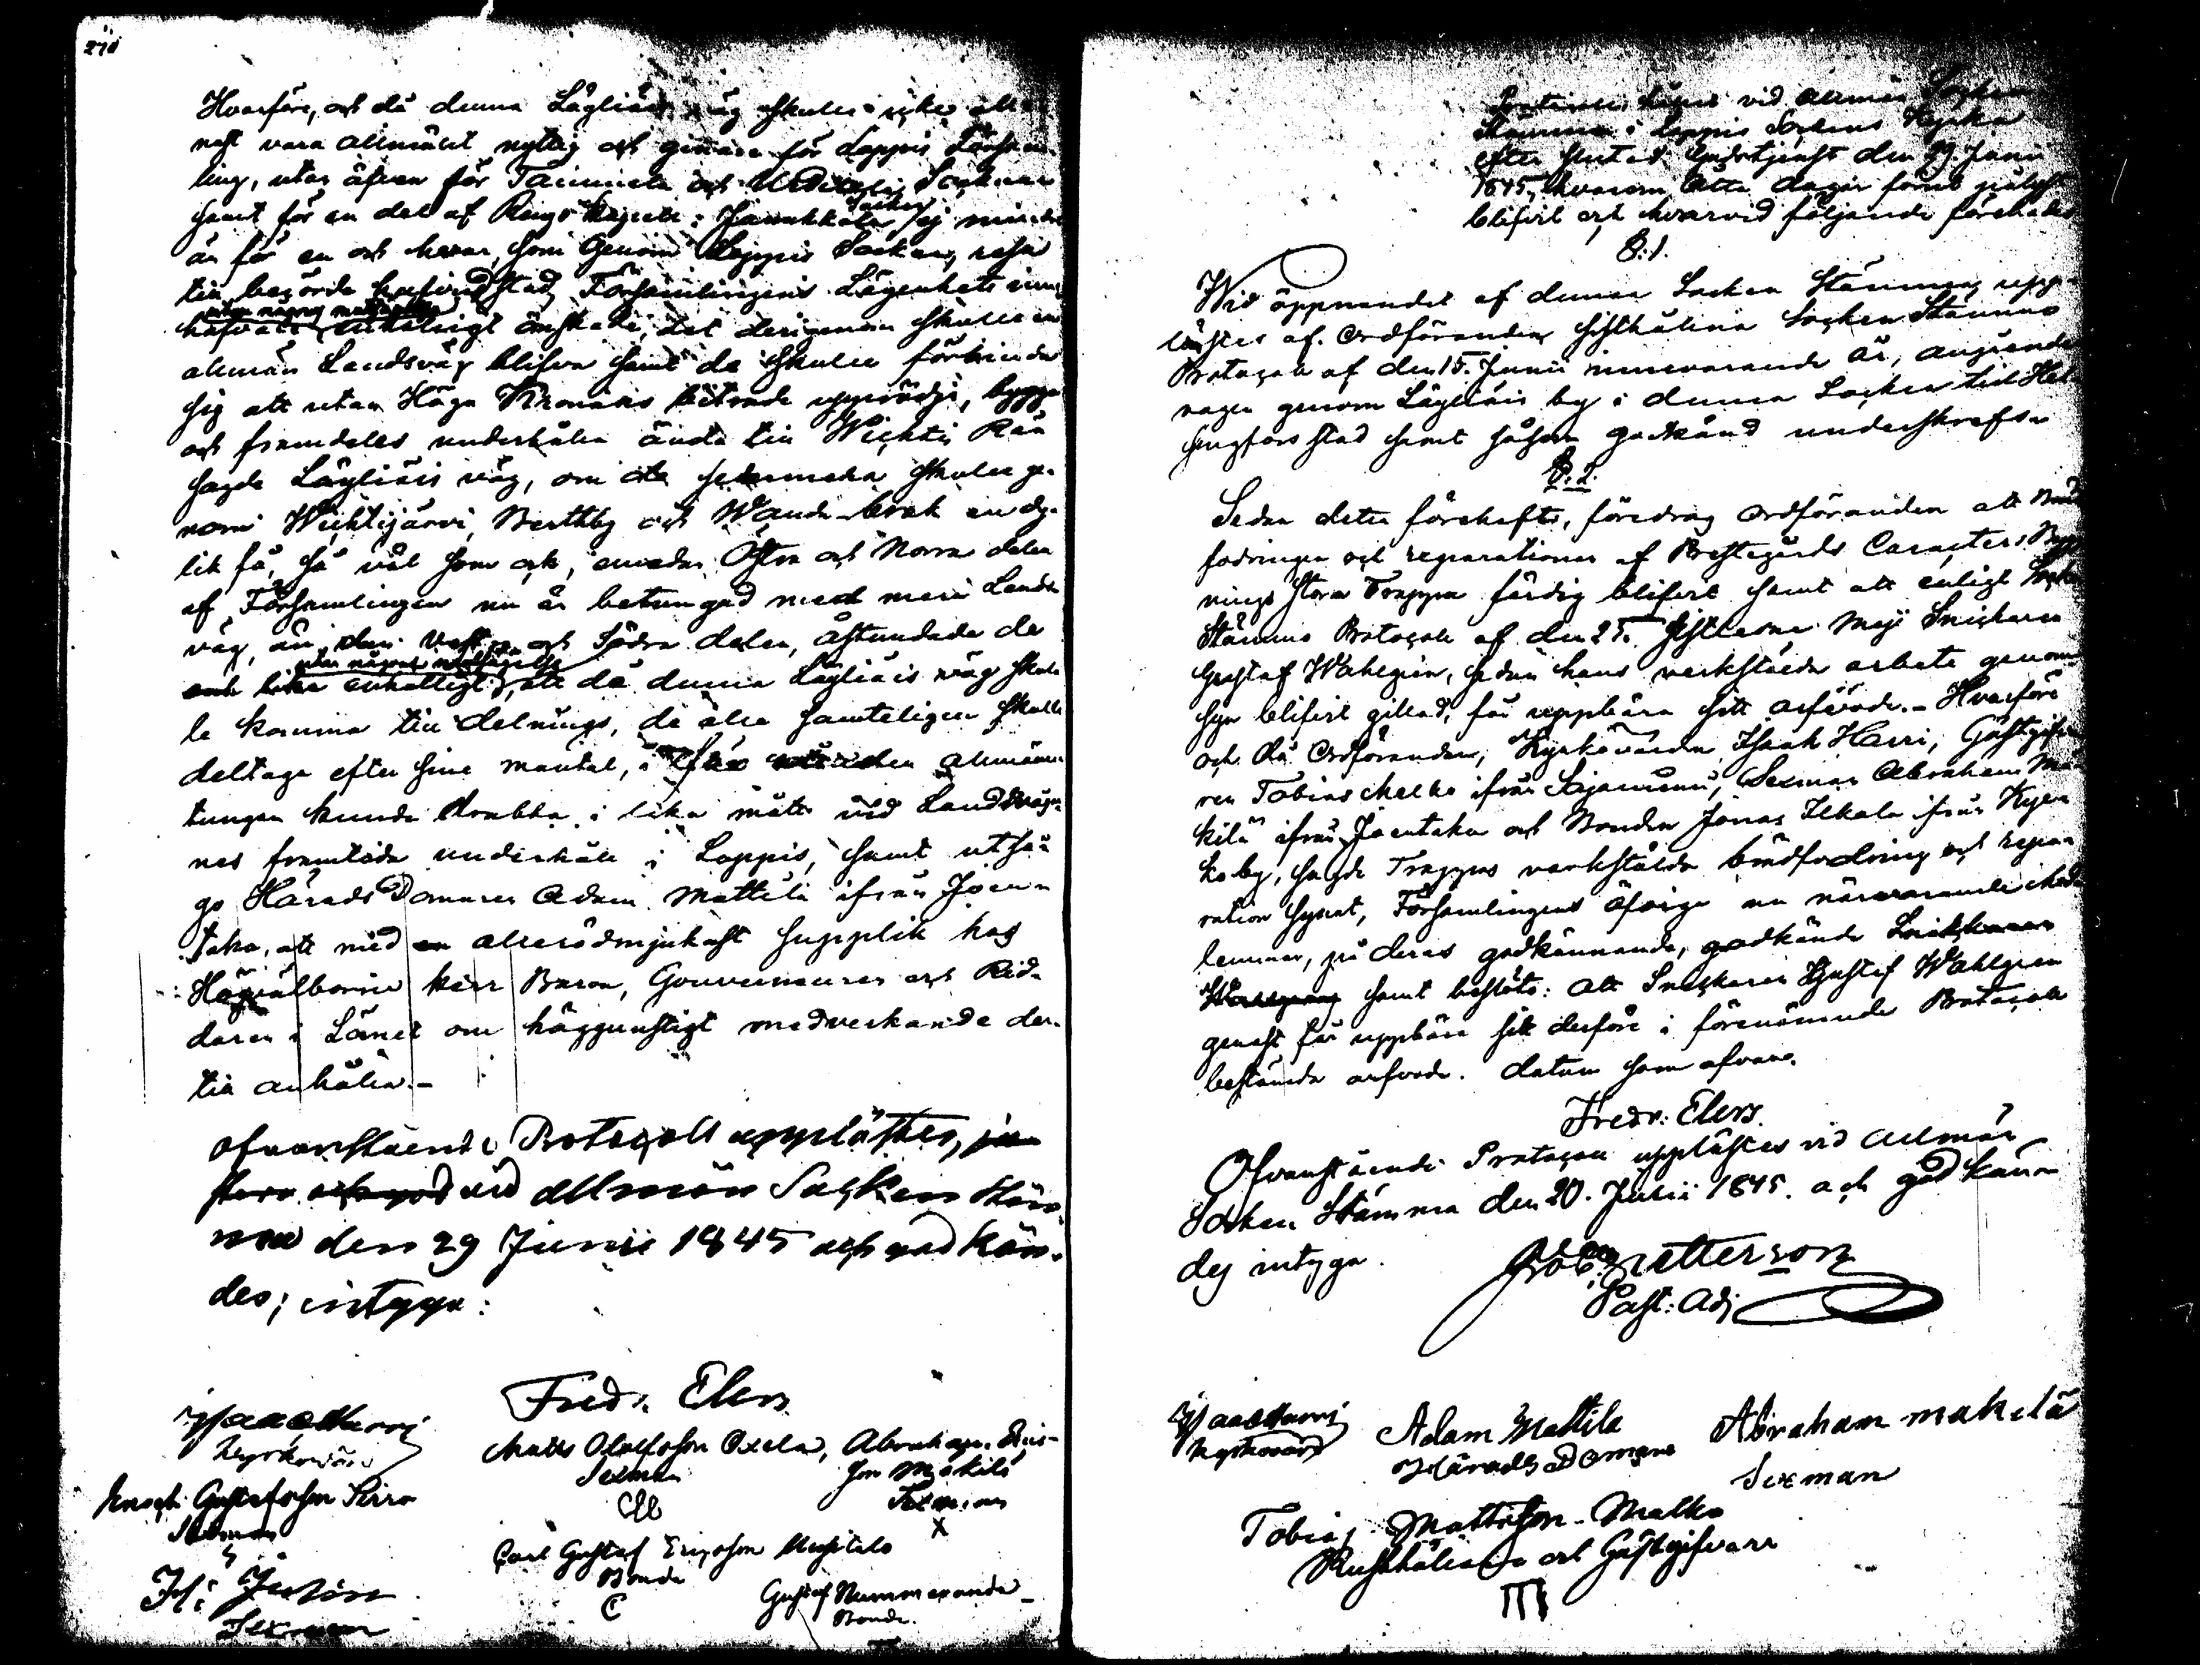 Hvarföre, och då denna Lägliäis väg skulle icke alle-
nast vara allmänt nyttig och ginare för Loppis Försam-
ling, utan äfven för Tammela och Urdiala Socknar
samt för en del af Rengo Kapell i Janakkala Socken, ej mindre
än för en och hvar, som genom Loppis Socken, resa
till berörde hufvudstad, Församlingens Lägenhets inne-
hafvare utan någon motsägelse enhälligt önskade, det derigenom skulle en
allmän Landsväg blifva samt de skulle förbinda
sig att utan Höga Kronans biträde upprödja, bygga
och framdeles underhålla ända till Wichtis Rån
sagde Lägliäis väg, om de sednare skulle ge-
nom Wichtijärvi, Bertby och Wanda beak en dy-
lik få, så väl som ock, emedan Östra och Norra delen
af Församlingen nu är betungad med mera Lands-
väg, än den Vestra och Södra delen, åstundade de
och lika enhälligt utan någons motsägelse, att då denna Lägliäis väg skul-
le komma till delnings, de alla samteligen skulle
deltaga efter sine mantal, i
tungan kunde drabba i lika mått vid Landsväga-
nes framtida underhåll i Loppis, samt utså-
go Härads Domaren Adam Mattila ifrån Joen-
taka, att med en allerödmjukast supplik hos
Högvälborne herr Baron, Gouverneuren och Rid-
daren i Länet om höggunstigt medverkande der-
till anhålla.-
Ofvanstående Protocoll upplästes,
vid allmän Socken Stäm-
ma den 29 Junii 1845 och god kän-
des; intyga:
Fredr. Elers
Isaac Harri
Kyrkovärd
Matts Olofsson Oxela,
Sexman
Abraham
son Mäkilä
Sexman
X
Enoch Gustafsson Sirro
Sexman
Carl Gustaf Ericsson Uusitalo
Bonde
C
Gustaf Nummenranda
Bonde.
H: Julin
Sexman
Protocoll hållet vid allmän Socken
Stämma i Loppis Sockens Kyrka
efter slutad Gudstjenst den 29 Junii
1845, hvarom åtta dagar förut pålyst
blifvit och hvarvid följande förehades
§.1.
Wid öppnandet af denna Socken Stämma, upp-
lästes af Ordföranden sisthållna Socken Stämmo
Protocoll af den 15 Junii innevarande år, angående
vägen genom Lägliäis by i denna Socken till Hel-
singfors stad samt såsom godkänd underskrefs.
§.2.
Sedan detta förehafts, föredrog Ordföranden att Bräd-
fodringen och reparationen af Prestegårds Caracters Bygg-
nings stora Trappa färdig blifvit samt att enligt Socken
Stämmo Protocoll af den 25 sistledne Maji Snickaren
Gustaf Wahlgren, sedan hans verkstälda arbete genom
syn blifvit gillad, får uppbära sitt arfvode.- Hvarföre
och då Ordföranden, Kyrkovärden Isaak Harri, Gästgifva-
ren Tobias Malko ifrån Sajaniemi, Sexman Abraham Mä-
kilä ifrån Joentaka och Bonden Jonas Ilkala ifrån Kyen-
ko by, sagde Trappas verkstälda brädfodring och repa-
ration synat, Församlingens öfrige nu närvarande med-
lemmar, på deras godkännande, godkände
samt beslöts: att Snickaren Gustaf Wahlgren
genast får uppbära sitt derföre i förenämnde Protocoll
bestämda arfvode. Datum som ofvan.
Fredr: Elers.
Ofvanstående Protocoll upplästes vid allmän
Socken Stämma den 20. Julii 1845. och god kän-
des intyga.
Petterson
Past: Adj
Isaac Harri
Kyrkovärd
Adam Mattila
Härads Domare
Abraham makilä
Sexman
Tobias Mattsson Malko
Rusthållare och Gästgifvare